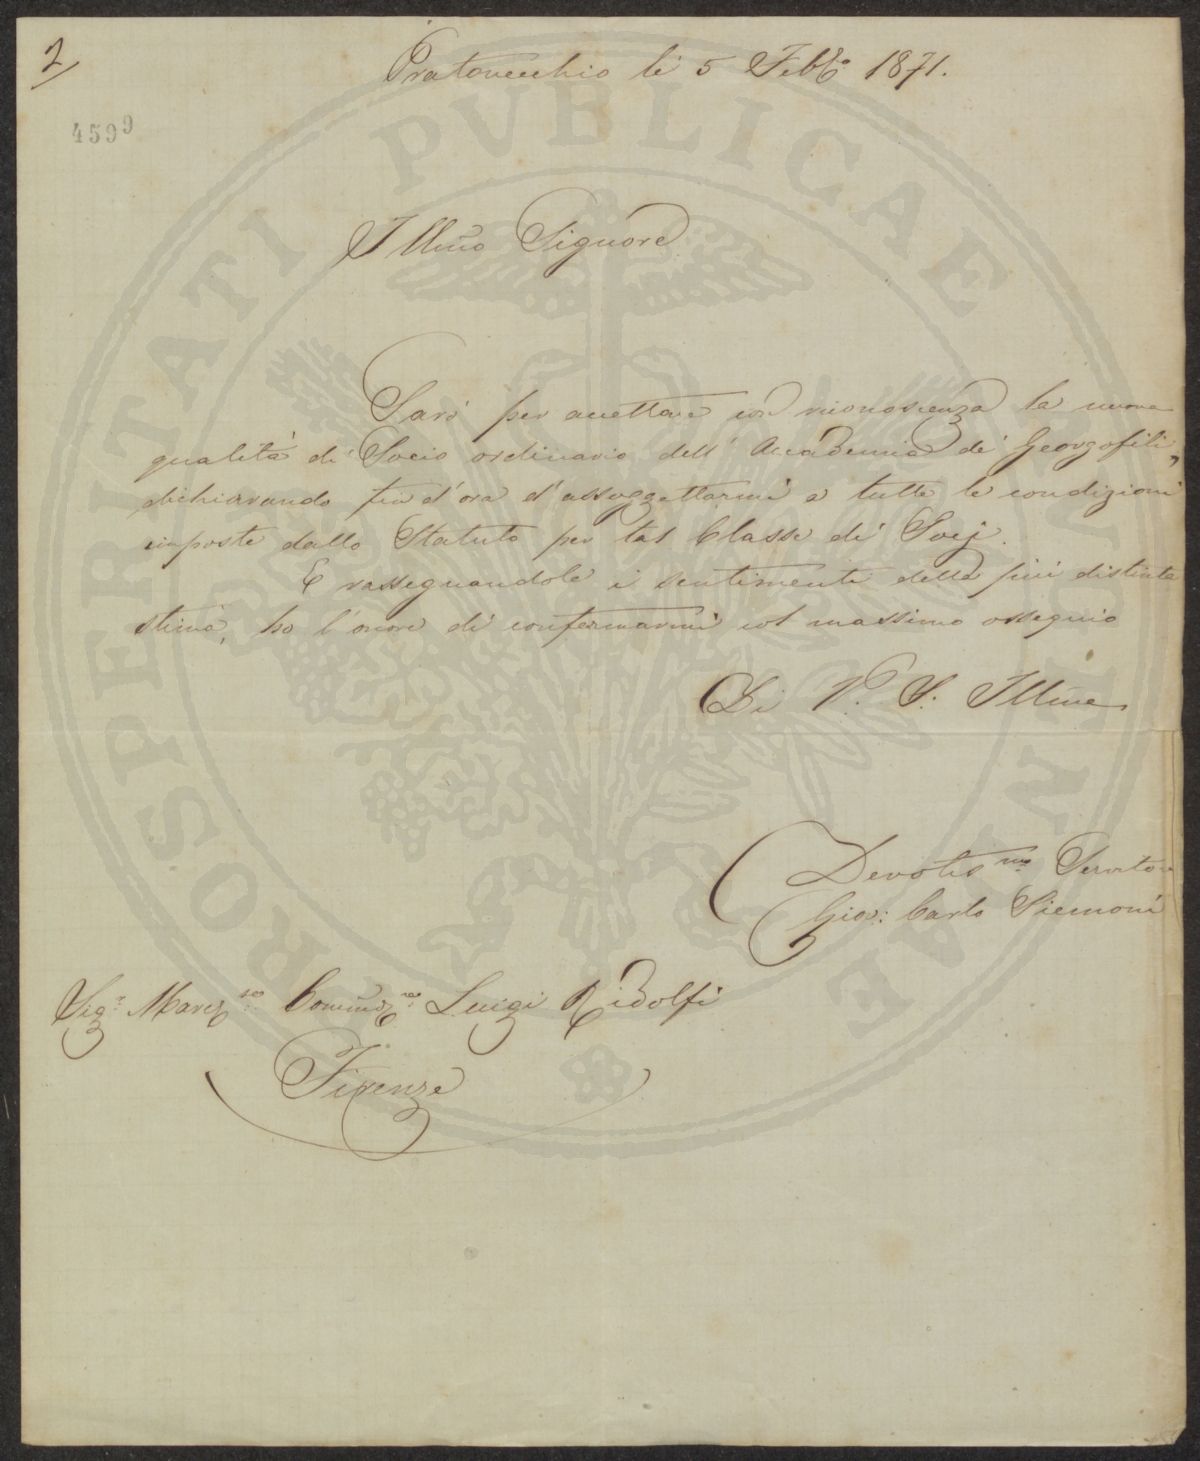 2/
Pratovecchio li 5 Febb.o 1871.
4599
Illmo Signore
Sarò per accettare con riconoscenza la nuova
qualità di Socio ordinario dell' Accademia de' Georgofili,
dichiarando fin d'ora d'assoggettarmi a tutte le condizioni
imposte dallo Statuto per tal Classe di Socj.
E rassegnandole i sentimenti della più distinta
stima, ho l'onore di confermarmi col massimo ossequio
Di V. S. Illma
Devotis.mo Servitore
Gio: Carlo Siemoni
Sig.r March.se Commd.re Luigi Ridolfi
Firenze
PROSPERITATI PUBLICAE AUGENDAE